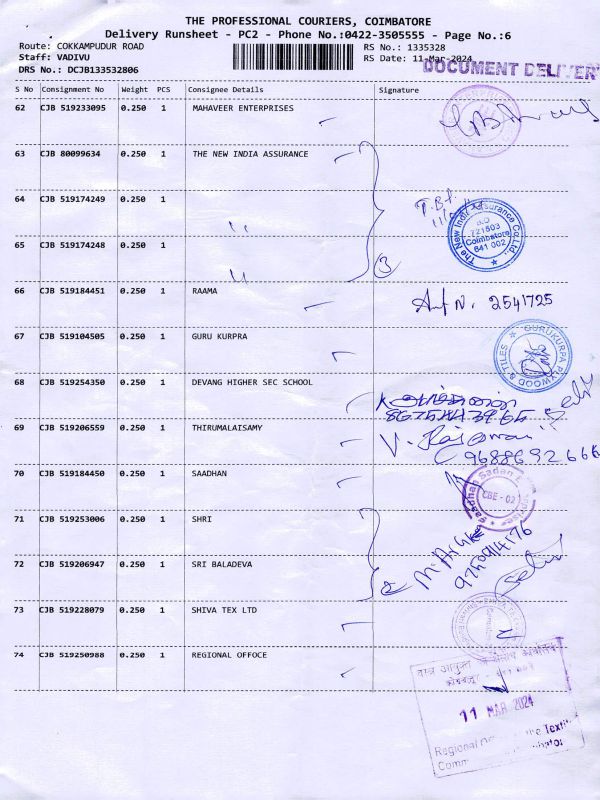 THE PROFESSIONAL COURIERS, COIMBATORE
Delivery Runsheet - PC2 - Phone No.:0422-3505555 - Page No.:6
Route: COKKAMPUDUR ROAD
Staff: VADIVU
DRS No.: DCJB133532806
RS No.: 1335328
RS Date: 11-Mar-2024
DOCUMENT DELIVERY
S No Consignment No Weight PCS Consignee Details Signature
62 CJB 519233095 0.250 1 MAHAVEER ENTERPRISES
63 CJB 80099634 0.250 1 THE NEW INDIA ASSURANCE
64 CJB 519174249 0.250 1 "
65 CJB 519174248 0.250 1 "
3
The New India Assurance Co.Ltd.
D.O
721503
Coimbatore
641 002
66 CJB 519184451 0.250 1 RAAMA
2541725
67 CJB 519104505 0.250 1 GURU KURPRA
GURUKURPA PLYWOOD & TILES
68 CJB 519254350 0.250 1 DEVANG HIGHER SEC SCHOOL
69 CJB 519206559 0.250 1 THIRUMALAISAMY
70 CJB 519184450 0.250 1 SAADHAN
CBE - 02
71 CJB 519253006 0.250 1 SHRI
72 CJB 519206947 0.250 1 SRI BALADEVA
2
73 CJB 519228079 0.250 1 SHIVA TEX LTD
74 CJB 519250988 0.250 1 REGIONAL OFFOCE
11 MAR 2024